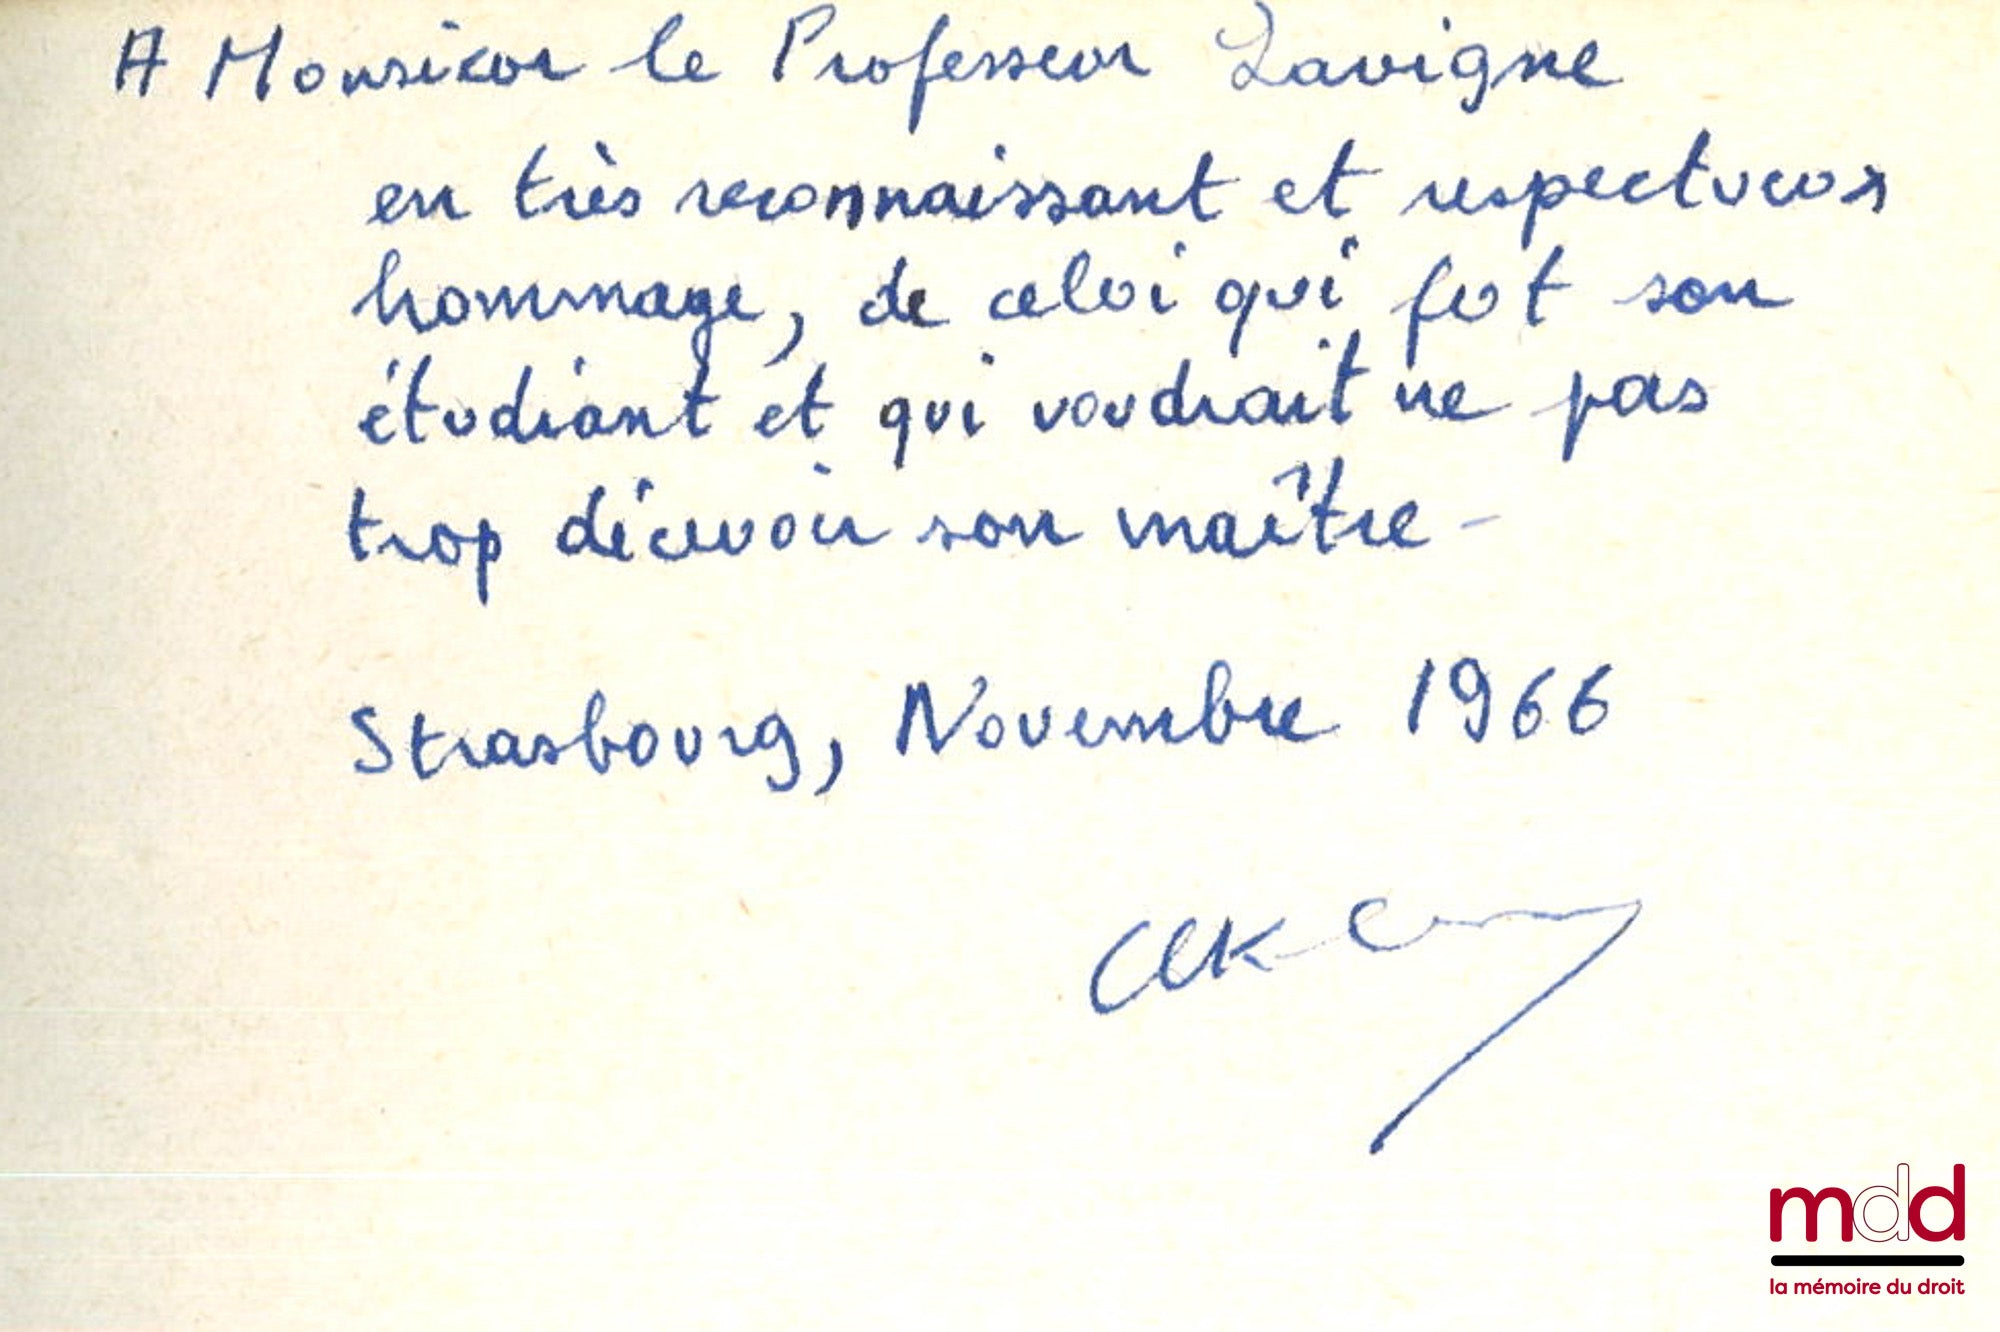 A Monsieur le Professeur Lavigne
en très reconnaissant et respectueux
hommage, de celui qui fut son
étudiant et qui voudrait ne pas
trop décevoir son maître -
Strasbourg, Novembre 1966
mdd
la mémoire du droit